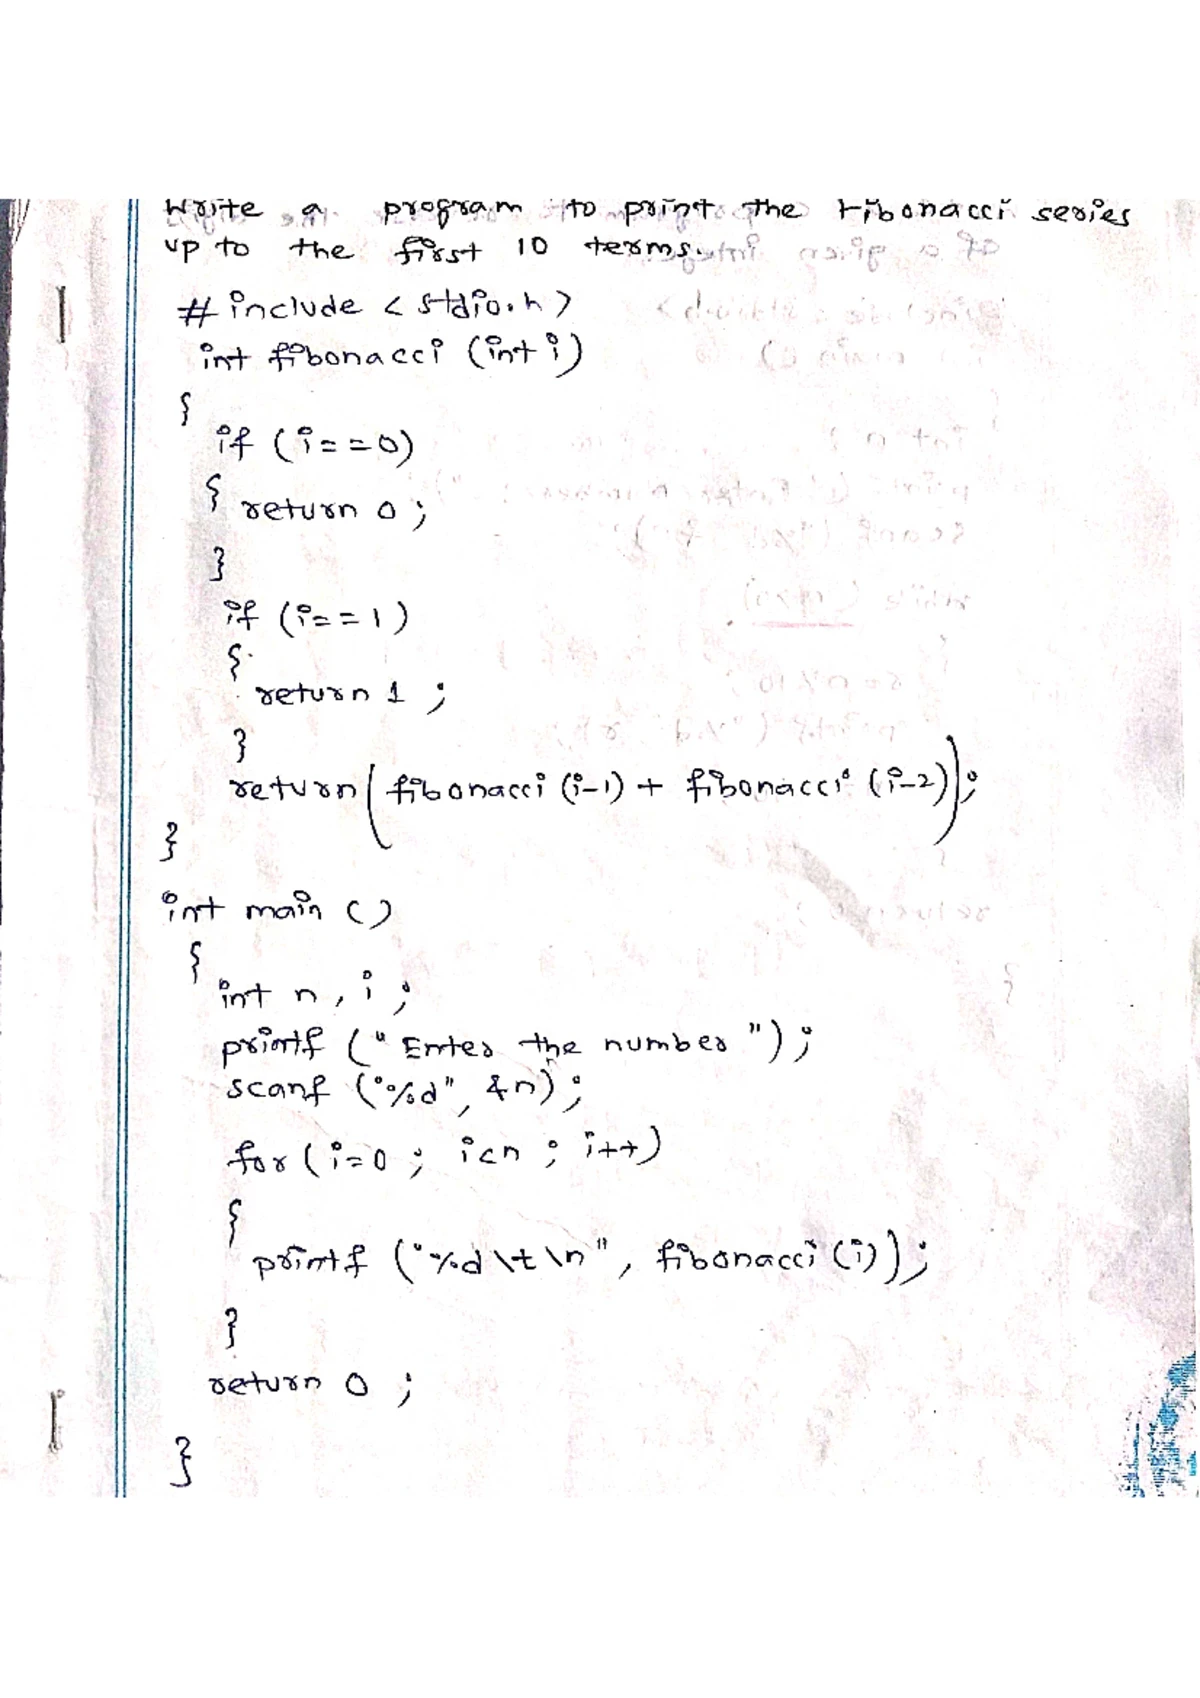 Write a program to print the Fibonacci series
up to the first 10 terms.
# include < stdio.h >
int fibonacci (int i)
{
if (i==0)
{ return 0 ;
}
if (i==1)
{
return 1 ;
}
return ( fibonacci (i-1) + fibonacci (i-2));
}
int main ()
{
int n, i ;
printf (" Enter the number ");
scanf ("%d", &n);
for ( i=0 ; i<n ; i++)
{
printf ("%d \t \n", fibonacci (i));
}
return 0 ;
}